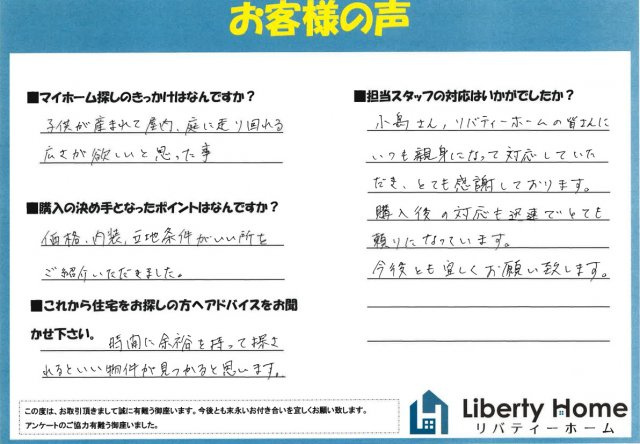 お客様の声
■マイホーム探しのきっかけはなんですか？
子供が産まれて屋内、庭に走り回れる
広さが欲しいと思った事
■購入の決め手となったポイントはなんですか？
価格、内装、立地条件がいい所を
ご紹介いただきました。
■これから住宅をお探しの方へアドバイスをお聞
かせ下さい。
時間に余裕を持って探さ
れるといい物件が見つかると思います。
■担当スタッフの対応はいかがでしたか？
小島さん、リバティーホームの皆さんに
いつも親身になって対応していた
だき、とても感謝しております。
購入後の対応も迅速でとても
頼りになっています。
今後とも宜しくお願い致します。
この度は、お取引頂きまして誠に有難う御座います。今後とも末永いお付き合いを宜しくお願い致します。
アンケートのご協力有難う御座いました。
Liberty Home
リバティーホーム